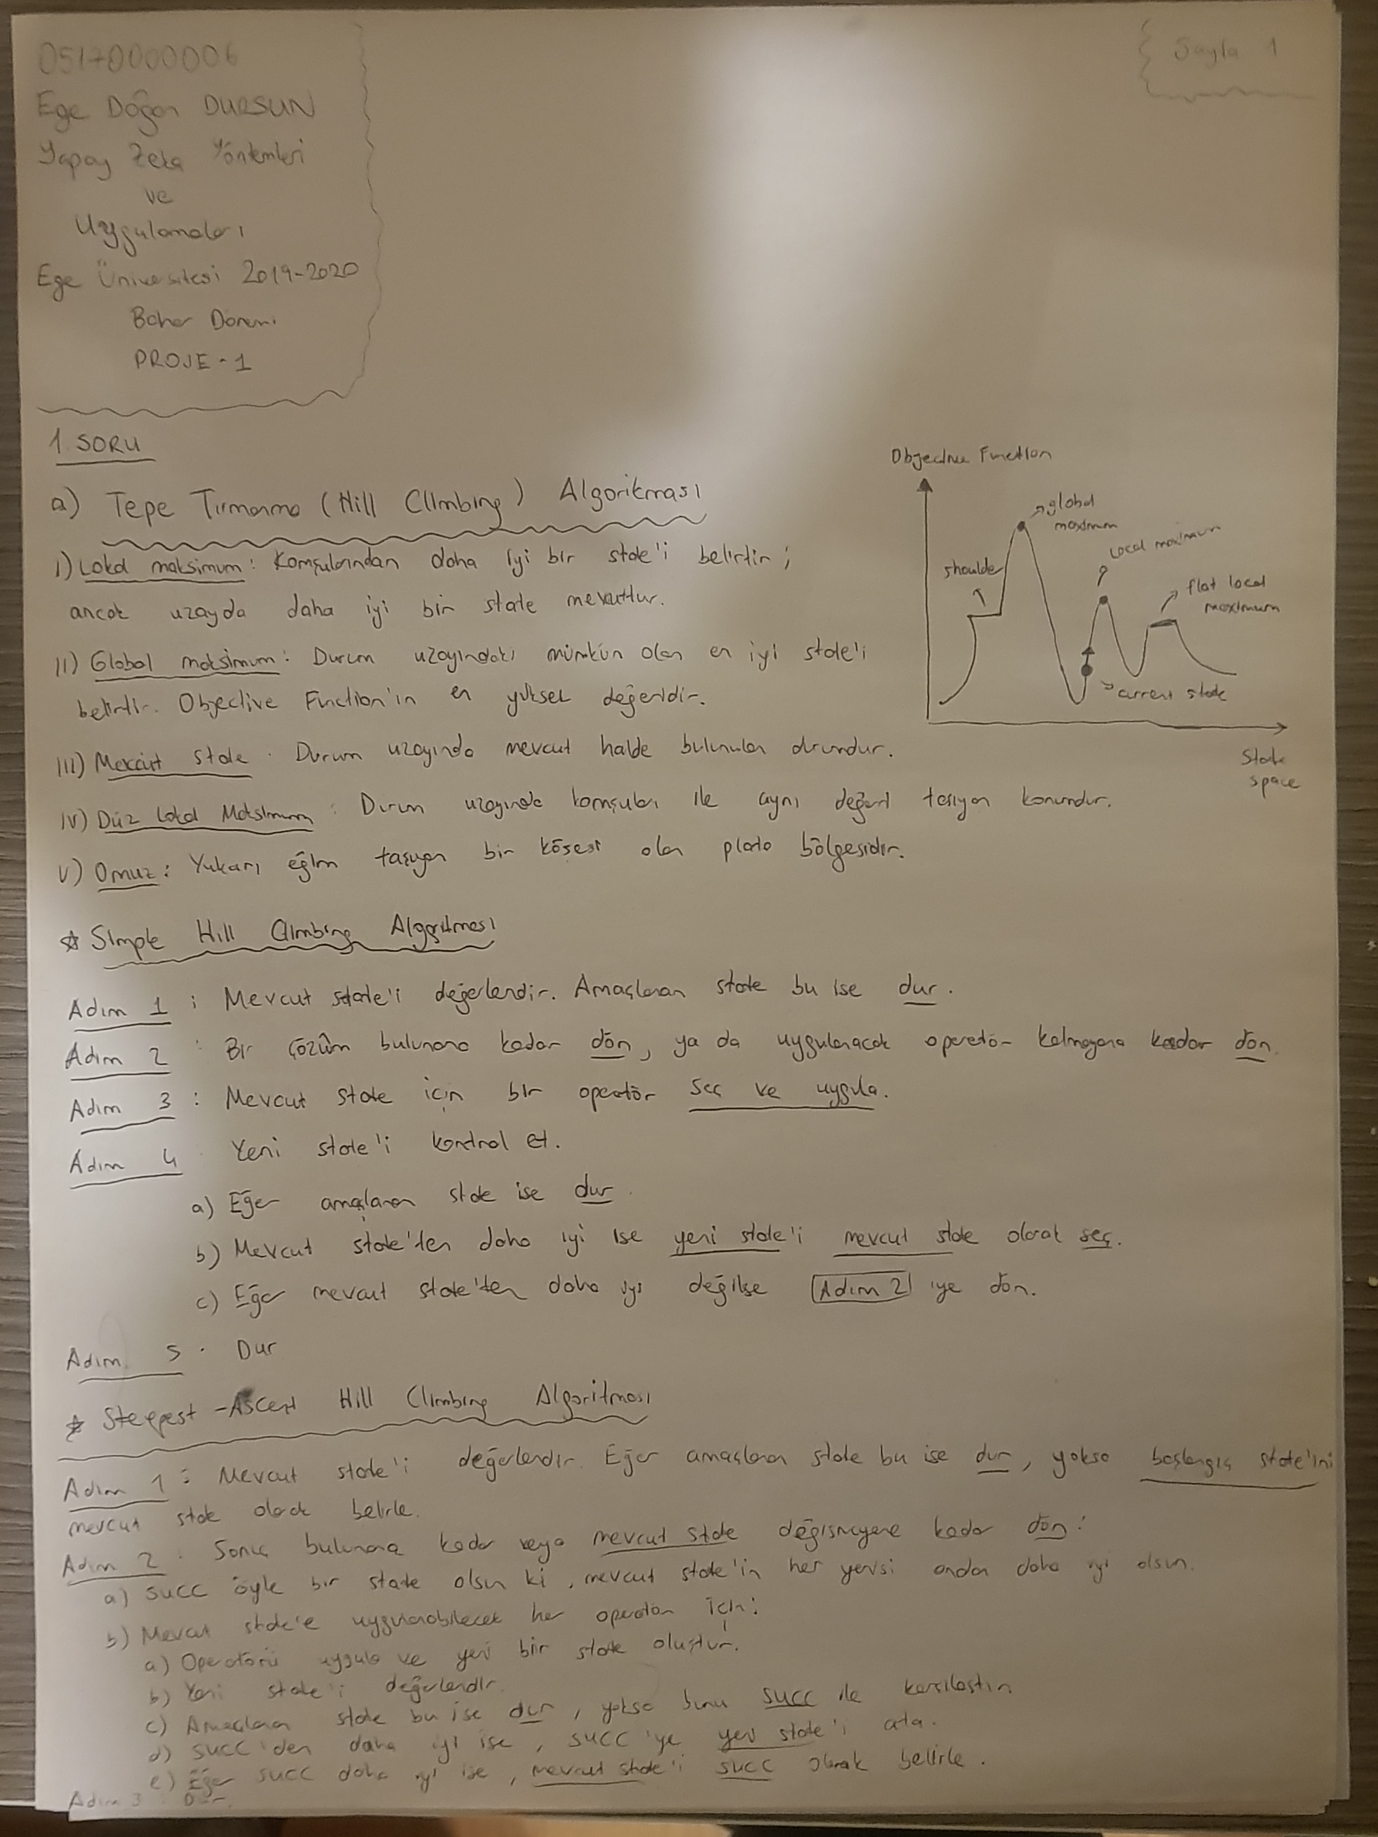 05170000006
Ege Doğan DURSUN
Yapay Zeka Yöntemleri
ve
Uygulamaları
Ege Üniversitesi 2019-2020
Bahar Dönemi
PROJE - 1
Sayfa 1
1. SORU
a) Tepe Tırmanma (Hill Climbing) Algoritması
I) Lokal maksimum: Komşularından daha iyi bir state'i belirtir;
ancak uzayda daha iyi bir state mevcuttur.
II) Global maksimum: Durum uzayındaki mümkün olan en iyi state'i
belirtir. Objective Function'ın en yüksek değeridir.
III) Mevcut state: Durum uzayında mevcut halde bulunulan durumdur.
IV) Düz Lokal Maksimum: Durum uzayında komşuları ile aynı değeri taşıyan konumdur.
V) Omuz: Yukarı eğim taşıyan bir köşesi olan plato bölgesidir.
Objective Function
global
maximum
shoulder
local maximum
flat local
maximum
current state
State
space
☆ Simple Hill Climbing Algoritması
Adım 1: Mevcut state'i değerlendir. Amaçlanan state bu ise dur.
Adım 2: Bir çözüm bulunana kadar dön, ya da uygulanacak operatör kalmayana kadar dön.
Adım 3: Mevcut state için bir operatör seç ve uygula.
Adım 4: Yeni state'i kontrol et.
a) Eğer amaçlanan state ise dur.
b) Mevcut state'ten daha iyi ise yeni state'i mevcut state olarak seç.
c) Eğer mevcut state'ten daha iyi değilse Adım 2'ye dön.
Adım 5: Dur
☆ Steepest-Ascent Hill Climbing Algoritması
Adım 1: Mevcut state'i değerlendir. Eğer amaçlanan state bu ise dur, yoksa başlangıç state'ini
mevcut state olarak belirle.
Adım 2: Sonuç bulunana kadar veya mevcut state değişmeyene kadar dön:
a) SUCC öyle bir state olsun ki, mevcut state'in her yenisi ondan daha iyi olsun.
b) Mevcut state'e uygulanabilecek her operatör için:
a) Operatörü uygula ve yeni bir state oluştur.
b) Yeni state'i değerlendir.
c) Amaçlanan state bu ise dur, yoksa bunu SUCC ile karşılaştır.
d) SUCC'den daha iyi ise, SUCC'ye yeni state'i ata.
e) Eğer SUCC daha iyi ise, mevcut state'i SUCC olarak belirle.
Adım 3: Dur.